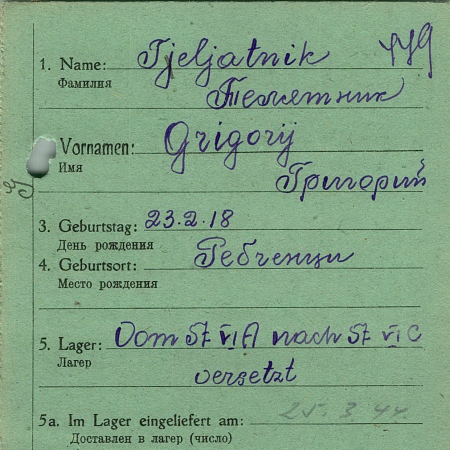 1. Name: Tjeljatnik 449
Фамилия
Телятник
Vornamen: Grigorij
Имя
Григорий
3. Geburtstag: 23.2.18
День рождения
4. Geburtsort: Гебченци
Место рождения
5. Lager: Vom St VI A nach St VI C
Лагер
versetzt
5a. Im Lager eingeliefert am: 25. 3. 44.
Доставлен в лагер (число)